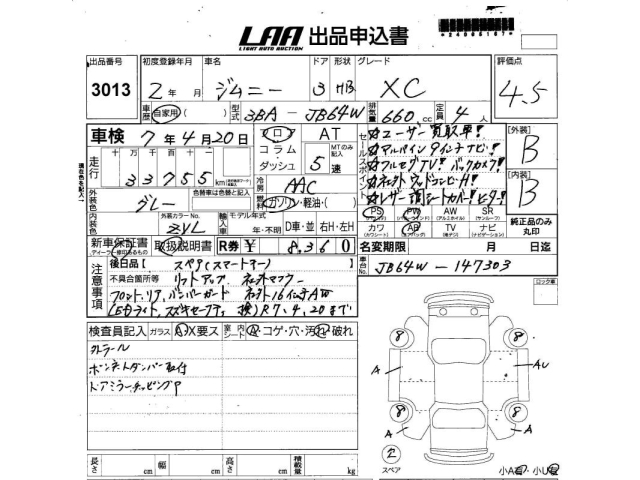 LAA 出品申込書
LIGHT AUTO AUCTION
出品番号 初度登録年月 車名 ドア 形状 グレード 評価点
3013 2 年 月 ジムニー 3 HB XC 4.5
車歴 自家用 ( ) 型式 3BA-JB64W 排気量 660 cc 定員 4 人
車検 7年4月20日
フロア コラム ダッシュ
AT
MTのみ記入
5 速
セールスポイント
☆ユーザー買取車!
☆アルパイン9インチナビ!
☆フルセグTV!バックカメラ!
☆レザー調シートカバー!ヒーター!
[外装]
B
[内装]
B
走行 十万 万 千 百 十
33755 km
現在色を記入
外装色 グレー
色替車は色替と記入
冷房 AAC
燃料 ガソリン・軽油・( )
PS PW AW SR
カワ AB TV ナビ
純正品のみ丸印
内装色
外装カラーNo. ZVL
輸入車 モデル年式 D車・並 右H・左H
新車保証書
取扱説明書
R券 ¥ 8,360
名変期限 月 日迄
車台No. JB64W-147303
注意事項
後日品 [ スペア(スマートキー) ]
不具合箇所等 リフトアップ
フロント,リア,バンパーガード 16インチAW
LEDライト,スズキセーフティ 検)R7,4,20まで
ロック車
検査員記入 ガラス A・X要ス 室内シート A・コゲ・穴・汚れ・破れ
ボンネットダンパー取付
ドアミラーチッピングP
8 8
A AU
8 8
A A
2
スペア
長さ cm 幅 cm 高さ cm 積載量 kg
小A有・小U有